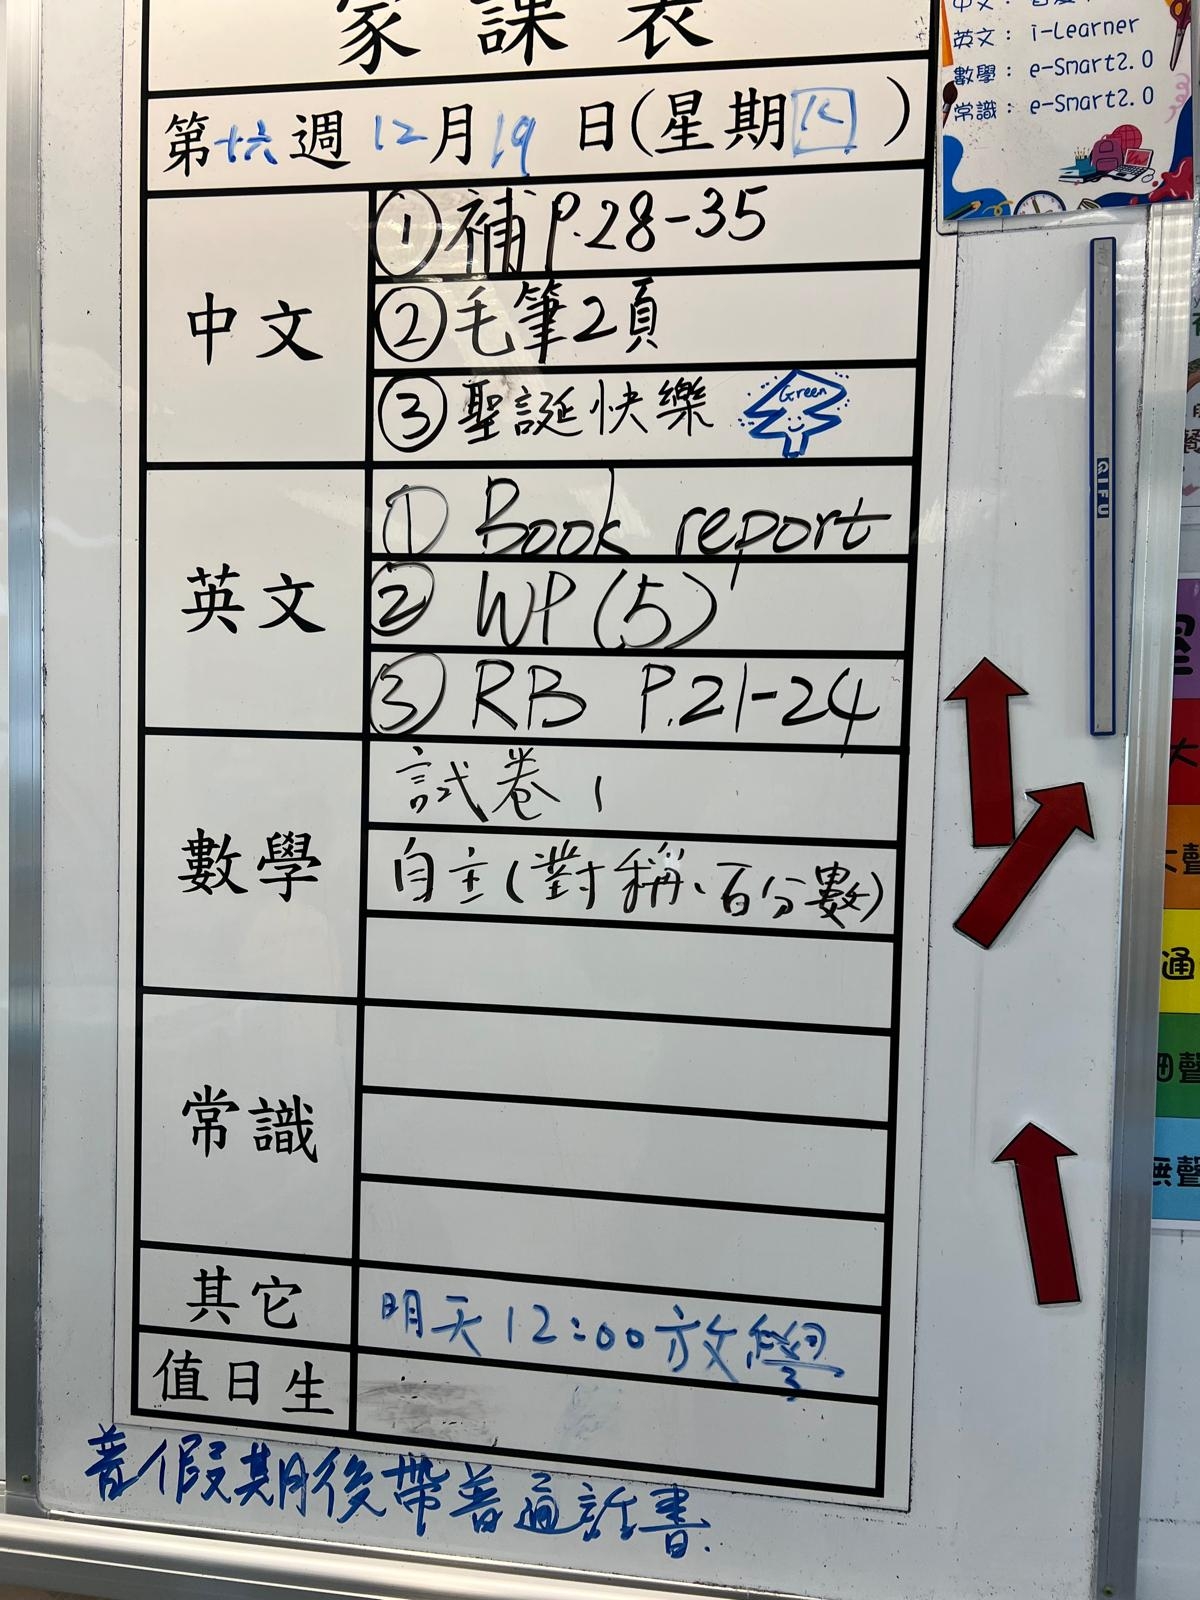 家課表
第十六週 12月19日(星期四)
中文
①補 P.28-35
②毛筆2頁
③聖誕快樂
Green
英文
① Book report
② WP(5)
③ RB P.21-24
數學
試卷1
自主(對稱、百分數)
常識
其它
明天12:00放學
值日生
普假期後帶普通話書.
中文：
英文： i-Learner
數學： e-Smart2.0
常識： e-Smart2.0
QIFU
大
大聲
通
細聲
無聲